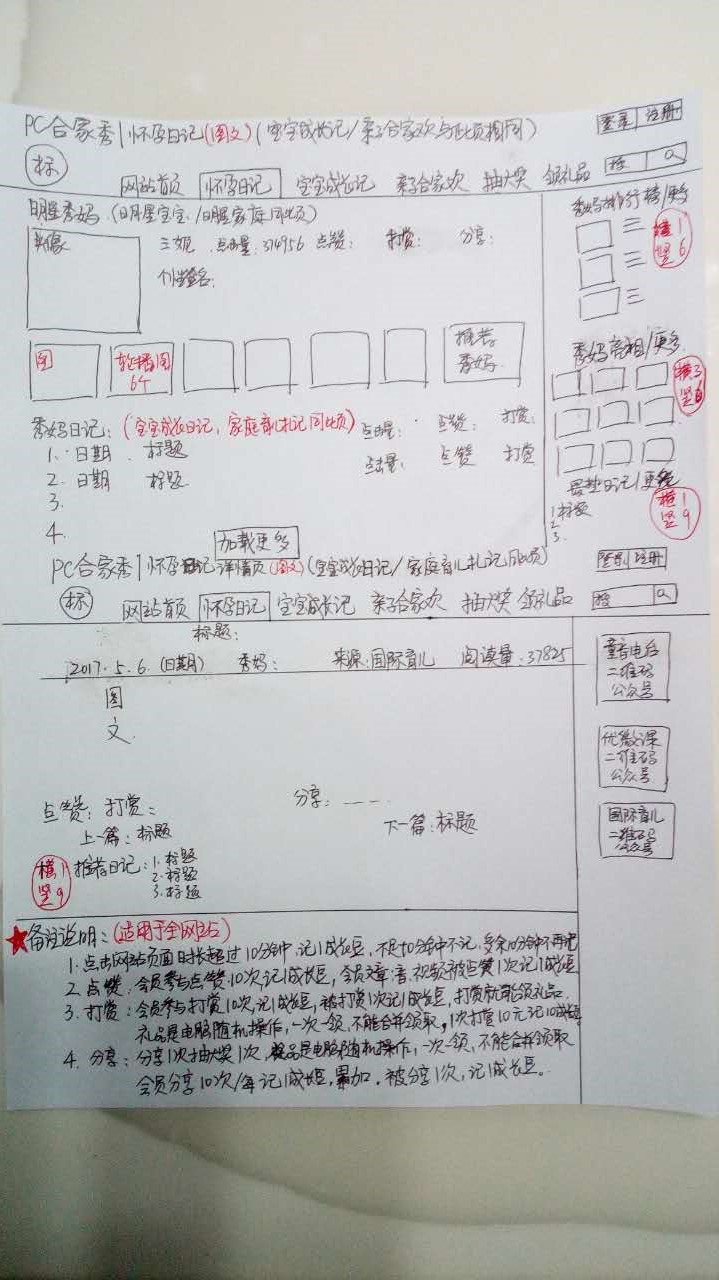 PC合家秀|怀孕日记(图文)(宝宝成长记/亲子合家欢与此页相同)
登录 注册
标
网站首页 怀孕日记 宝宝成长记 亲子合家欢 抽大奖 领礼品 搜
明星秀妈(明星宝宝/明星家庭同此页)
秀妈排行榜/更多
头像
三妮 点击量:374956 点赞: 打赏: 分享:
横1
竖6
个性签名:
秀妈亮相/更多
图
轮播图
6个
推荐
秀妈
横3
竖6
秀妈日记:(宝宝成长日记,家庭育儿札记同此页) 点击量: 点赞: 打赏:
1. 日期 标题
点击量: 点赞 打赏
2. 日期 标题
3.
4.
加载更多
最热日记/更多
1.标题
2.
3.
横1
竖9
PC合家秀|怀孕日记详情页(图文)(宝宝成长日记/家庭育儿札记同此页)
登录 注册
标
网站首页 怀孕日记 宝宝成长记 亲子合家欢 抽大奖 领礼品 搜
标题:
2017.5.6.(日期) 秀妈: 来源:国际育儿 阅读量:37825
图
文
二维码
公众号
二维码
公众号
国际育儿
二维码
公众号
点赞: 打赏: 分享:
上一篇:标题 下一篇:标题
横1
竖9
推荐日记:1.标题
2.标题
3.标题
★备注说明:(适用于全网站)
1. 点击网站页面时长超过10分钟,记1成长豆,不足10分钟不记,多余10分钟不再记
2. 点赞:会员参与点赞10次,记1成长豆,会员文章、音、视频被点赞1次记1成长豆
3. 打赏:会员参与打赏10次,记1成长豆,被打赏1次记1成长豆,打赏就能领礼品.
礼品是电脑随机操作,一次一领,不能合并领取,1次打赏10元记10成长豆
4. 分享:分享1次抽大奖1次,奖品是电脑随机操作,一次一领,不能合并领取
会员分享10次/每记1成长豆,累加.被分享1次,记1成长豆。